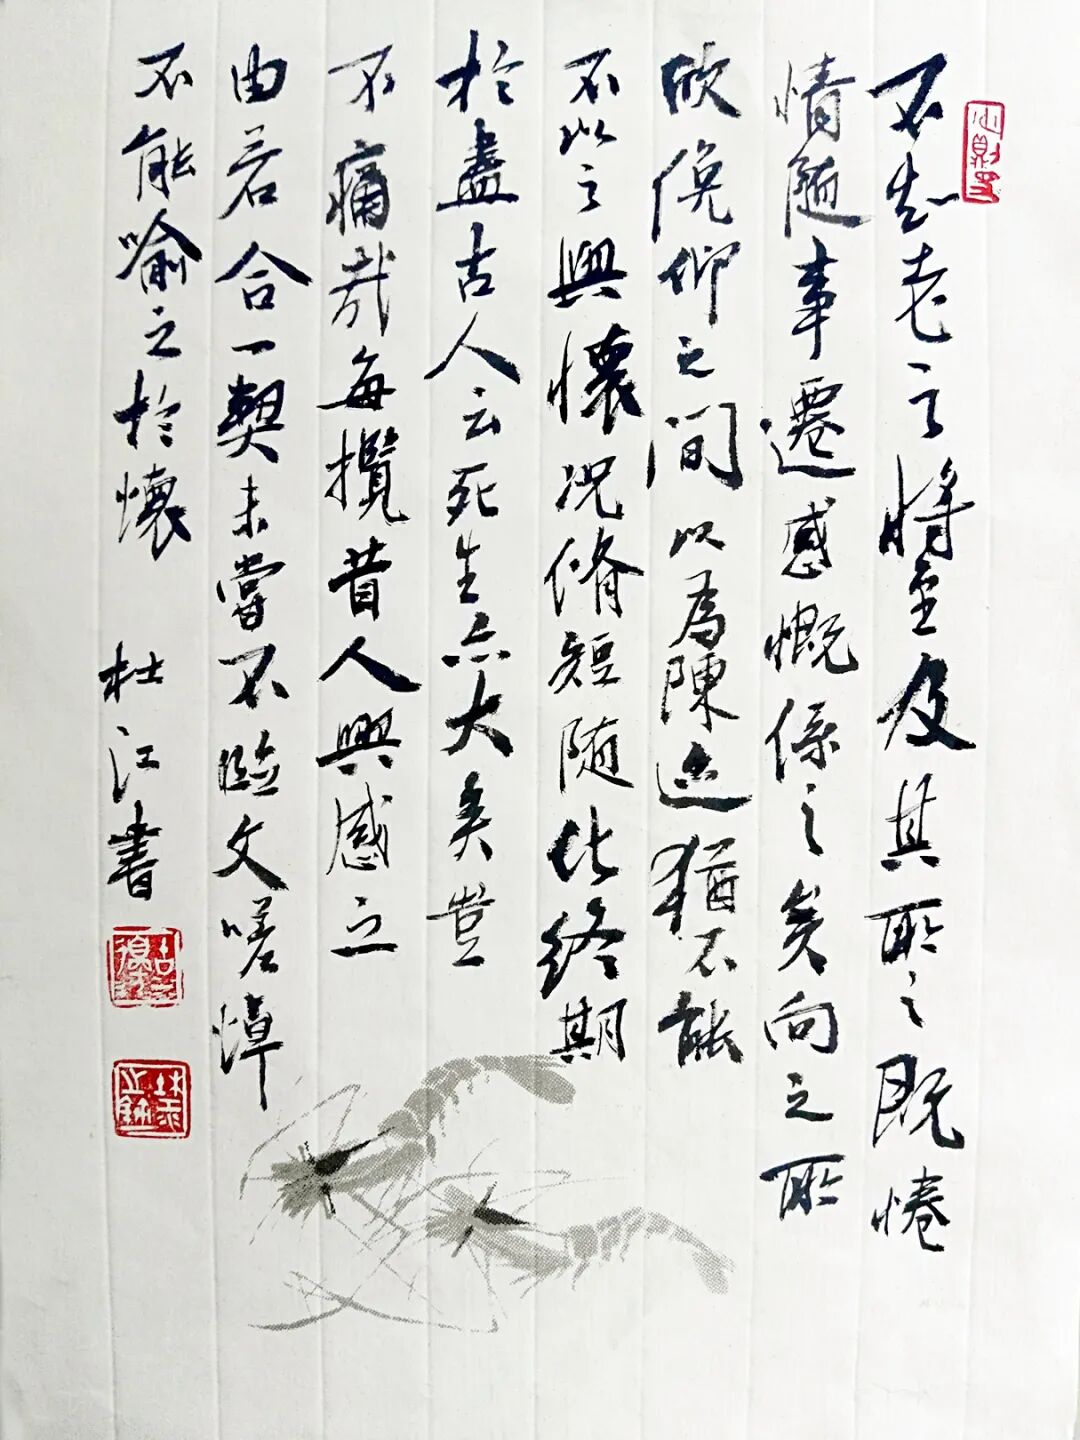 不知老之將至及其所之既惓
情隨事遷感慨係之矣向之所
欣俛仰之間以為陳迹猶不能
不以之興懷況脩短随化終期
於盡古人云死生亦大矣豈
不痛哉每攬昔人興感之
由若合一契未嘗不臨文嗟悼
不能喻之於懷
杜江書